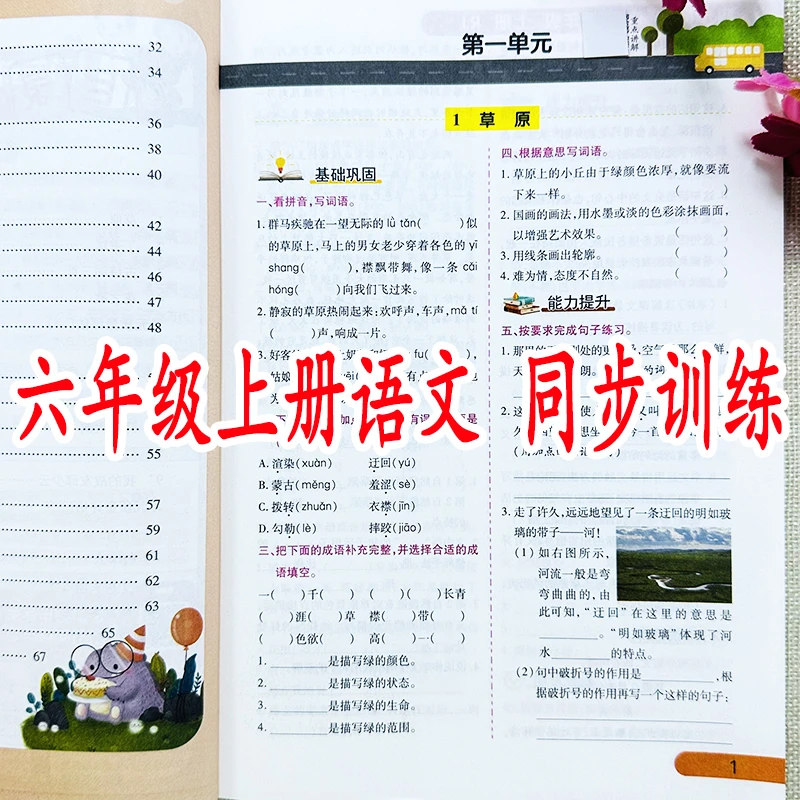 32
34
36
38
40
42
44
46
47
48
55
57
59
61
62
63
65
67
重点讲解
第一单元
1 草原
基础巩固
一、看拼音,写词语。
1. 群马疾驰在一望无际的 lǜ tǎn( )似
的草原上,马上的男女老少穿着各色的 yī
shang( ),襟飘带舞,像一条 cǎi
hóng( )向我们飞过来。
2. 静寂的草原热闹起来:欢呼声,车声,mǎ tí
( )声,响成一片。
3. 好客
fu( ),
姑娘
六年级上册语文 同步训练
A. 渲染(xuàn) 迂回(yú)
B. 蒙古(měng) 羞涩(sè)
C. 拨转(zhuǎn) 衣襟(jīn)
D. 勾勒(lè) 摔跤(jiāo)
三、把下面的成语补充完整,并选择合适的成
语填空。
一( )千( ) ( )( )长青
( )涯( )草 襟( )带( )
( )色欲( ) 高( )一( )
1. ________是描写绿的颜色。
2. ________是描写绿的状态。
3. ________是描写绿的生命。
4. ________是描写绿的范围。
四、根据意思写词语。
1. 草原上的小丘由于绿颜色浓厚,就像要流
下来一样。 ( )
2. 国画的画法,用水墨或淡的色彩涂抹画面,
以增强艺术效果。 ( )
3. 用线条画出轮廓。 ( )
4. 难为情,态度不自然。 ( )
能力提升
五、按要求完成句子练习。
1. 那里的
2. 这
3. 走了许久,远远地望见了一条迂回的明如玻
璃的带子——河!
(1) 如右图所示,
河流一般是弯
弯曲曲的,由
此可知,“迂回”在这里的意思是
________。“明如玻璃”体现了河
水________的特点。
(2) 句中破折号的作用是________,根
据破折号的作用再写一个这样的句子:
1